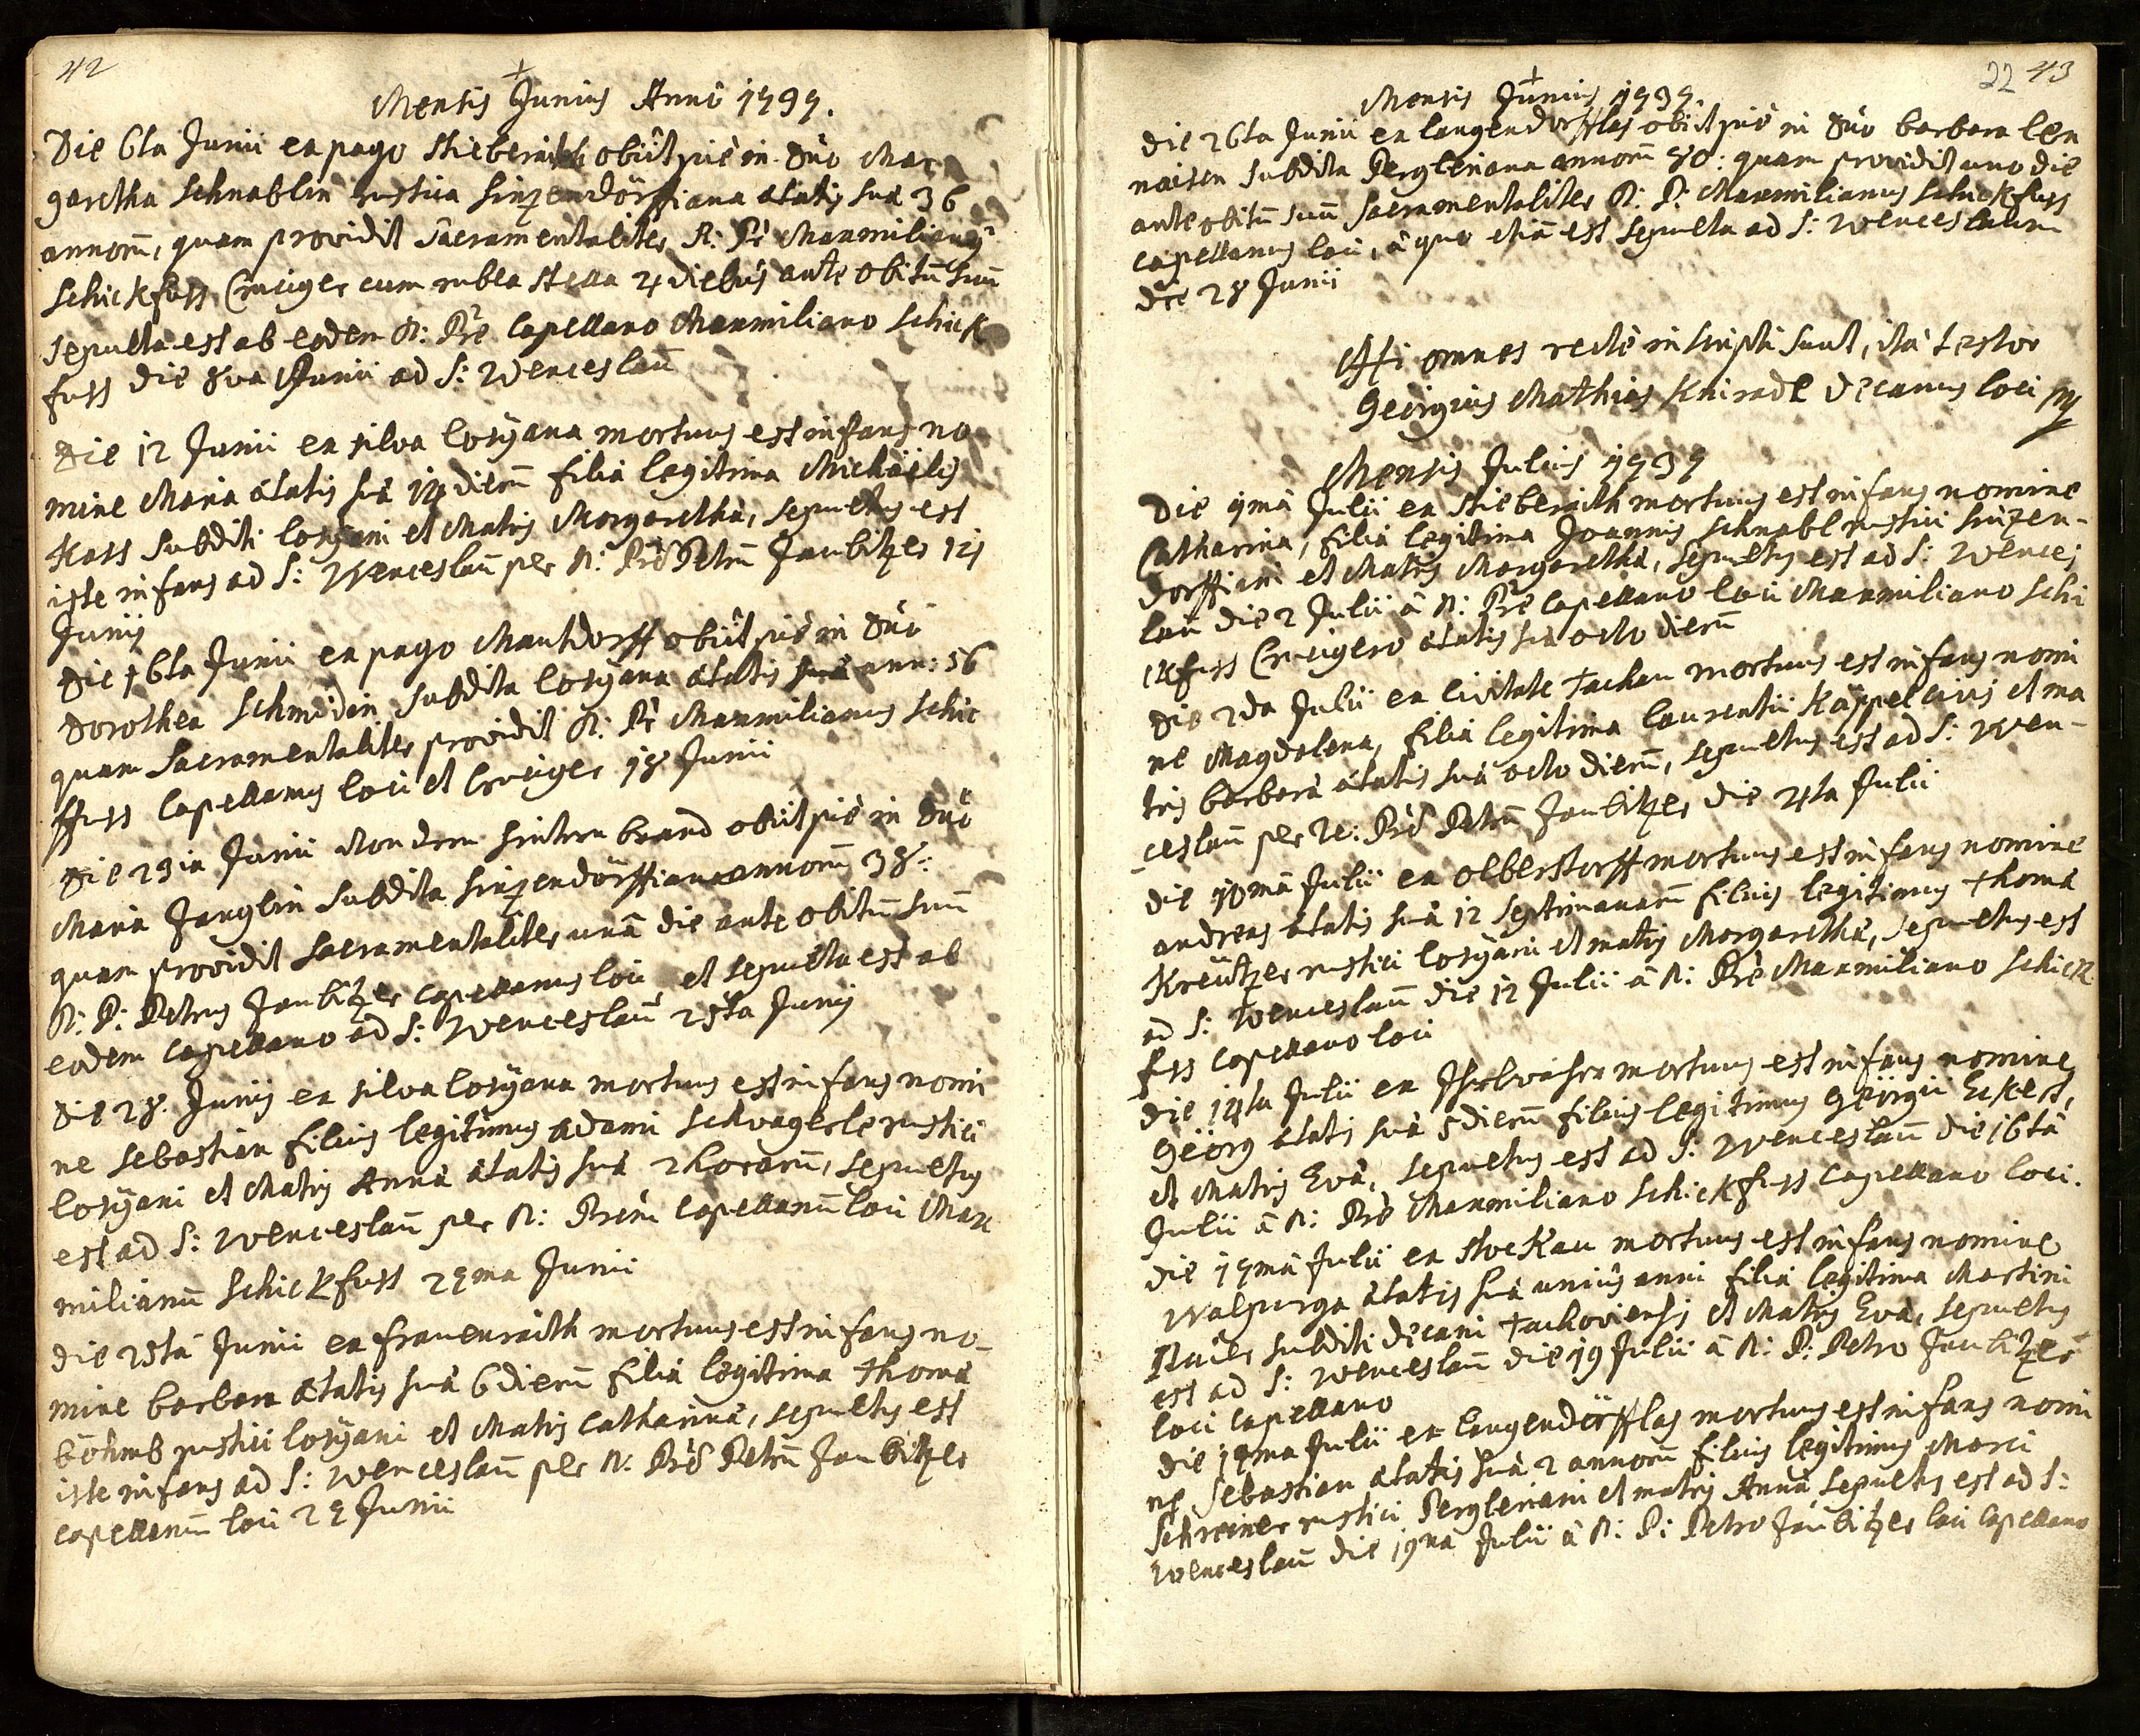 42
Mensis Junius Anni 1737.
Die 6ta Junii ex pago Stieberaith obiit piè in Dnô Mar
garetha Schnablin rustica Sinzendörffiana ætatis suæ 36
annorū, quam providit Sacramentaliter R: Pr̃ Maxmilianus
Schickfuss Cruciger cum rubea stella 4 diebus ante obitū suū
sepulta est ab eodem R: Pr̃e Capellano Maxmiliano Schick
fuss die 8va Junii ad S: Wenceslaū
Die 12 Junii ex silva losÿana mortuus est infans no
mine Maria ætatis suæ 14 dierū filia legitima Michäelis
Kass subditi losÿani et Matris Margarethæ, sepultus est
iste infans ad S: Wenceslaū per R: Prẽ Petrū Jaubitzer 14
Junij
Die 16ta Junii ex pago Mauthdorff obiit piè in Dnô
Dorothea Schmidin subdita losÿana ætatis suæ ann: 56
quam Sacramentaliter providit R: Pr̃ Maxmilianus Schic
kfuss Capellanus loci et Cruciger 18 Junii
Die 23ia Junii von dem hintern brand obiit piè in Dnô
Maria Janglin subdita Sinzendörffiana annorū 38:
quam providit Sacramentaliter unâ die ante obitū suū
R: P: Petrus Jaubitzer capellanus loci et sepulta est ab
eodem capellano ad S: Wenceslaū 25ta Junij
Die 28. Junij ex silva losÿana mortuus est infans nomi
ne Sebastian filius legitimus Adami Schwagerle rustici
losÿani et Matris Annæ ætatis suæ 2 horarū, sepultus
est ad S: Wenceslaū per R: Prẽm Capellanū loci Max
milianū Schickfuss 29ma Junii
Die 25ta Junii ex frauenraith mortuus est infans no-
mine barbara ætatis suæ 6 dierū filia legitima Thomæ
böhmb rustici losÿani et Matris Catharinæ, sepultus est
iste infans ad S: Wenceslaū per R: Prẽ Petrū Jaubitzer
capellanum loci 27 Junii
22 43
Mensis Junius 1737.
Die 26ta Junii ex langendorfflas obiit piè in Dnô barbara len
naisen subdita Pergleriana annorū 80: quam providit uno die
ante obitū suū sacramentaliter R: P: Maxmilianus Schickfuss
capellanus loci, à quo etiā est sepulta ad S: Wenceslaum
die 28 Junii
Hi omnes rectè inscripti sunt, ità testor
Georgius Mathias Kniradl Decanus loci
Mensis Julius 1737
Die 1mâ Julii ex Stieberaith mortuus est infans nomine
Catharina, filia legitima Joannis Schnabl rustici Sinzen-
dorffiani et Matris Margarethæ, sepultus est ad S: Wences
laū die 2 Julii à R: Pr̃e Capellano loci Maxmiliano Schi
ckfuss Crucigero ætatis suæ octo dierū
Die 2da Julii ex civitate Tachau mortuus est infans nomi
ne Magdalena, filia legitima laurentii Kappel civis et ma
tris barbaræ ætatis suæ octo dierū, sepultus est ad S: Wen-
ceslaū per R: Prẽ Petrū Jaubitzer die 4ta Julii
die 10mâ Julii ex Olberstorff mortuus est infans nomine
andreas ætatis suæ 12 septimanarū filius legitimus Thomæ
Kreützer rustici losÿani et matris Margarethæ, sepultus est
ad S: Wenceslaū die 12 Julii à R: Pr̃e Maxmiliano Schick
fuss capellano loci
Die 14ta Julii ex mortuus est infans nomine
Geörg ætatis suæ 5 dierū filius legitimus Geörgii Eckert,
et Matris Evæ, sepultus est ad S: Wenceslaū die 16tâ
Julii à R: Prẽ Maxmiliano Schickfuss Capellano loci.
die 17mâ Julii ex Stockau mortuus est infans nomine
Walpurga ætatis suæ unius anni filia legitima Martini
subditi decani Tachoviensis et Matris Evæ, sepultus
est ad S: Wenceslaū die 19 Julii à R: P: Petro Jaubitzer
loci Capellano
Die 17ma Julii ex langendörfflas mortuus est infans nomi
ne Sebastian ætatis suæ 2 annorū filius legitimus Marci
Schreiner rustici Pergleriani et matris Annæ sepultus est ad S:
Wenceslaū die 19na Julii à R: P: Petro Jaubitzer loci Capellano